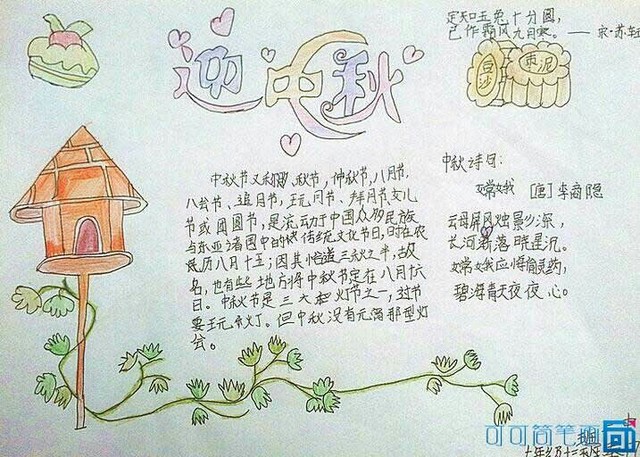 迎中秋
定知玉兔十分圆,
已作霜风九月寒。——宋·苏轼
豆沙
枣泥
中秋节又称、秋节,仲秋节,八月节,
八会节、追月节,玩月节、拜月节,女儿
节或团圆节,是流动于中国众多民族
与东亚诸国中的传统文化节日,时在农
历八月十五;因其恰逢三秋之半,故
名,也有些地方将中秋节定在八月十六
日。中秋节是三大灯节之一,过节
要玩灯。但中秋没有元宵那型灯
会。
中秋诗句:
嫦娥 [唐]李商隐
云母屏风烛影深,
长河渐落晓星沉。
嫦娥应悔偷灵药,
碧海青天夜夜心。
可可简笔画